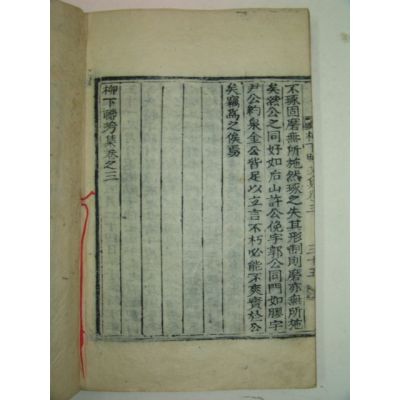 不琢固磨無所施然琢之失其形制則磨亦無所施
矣然公之同好如后山許公俛宇郭公同門如膠宇
尹公約泉金公皆足以立言不朽必能不爽實於公
矣竊爲之俟焉
柳下聯芳集卷之三
柳下聯芳集卷三
三十五